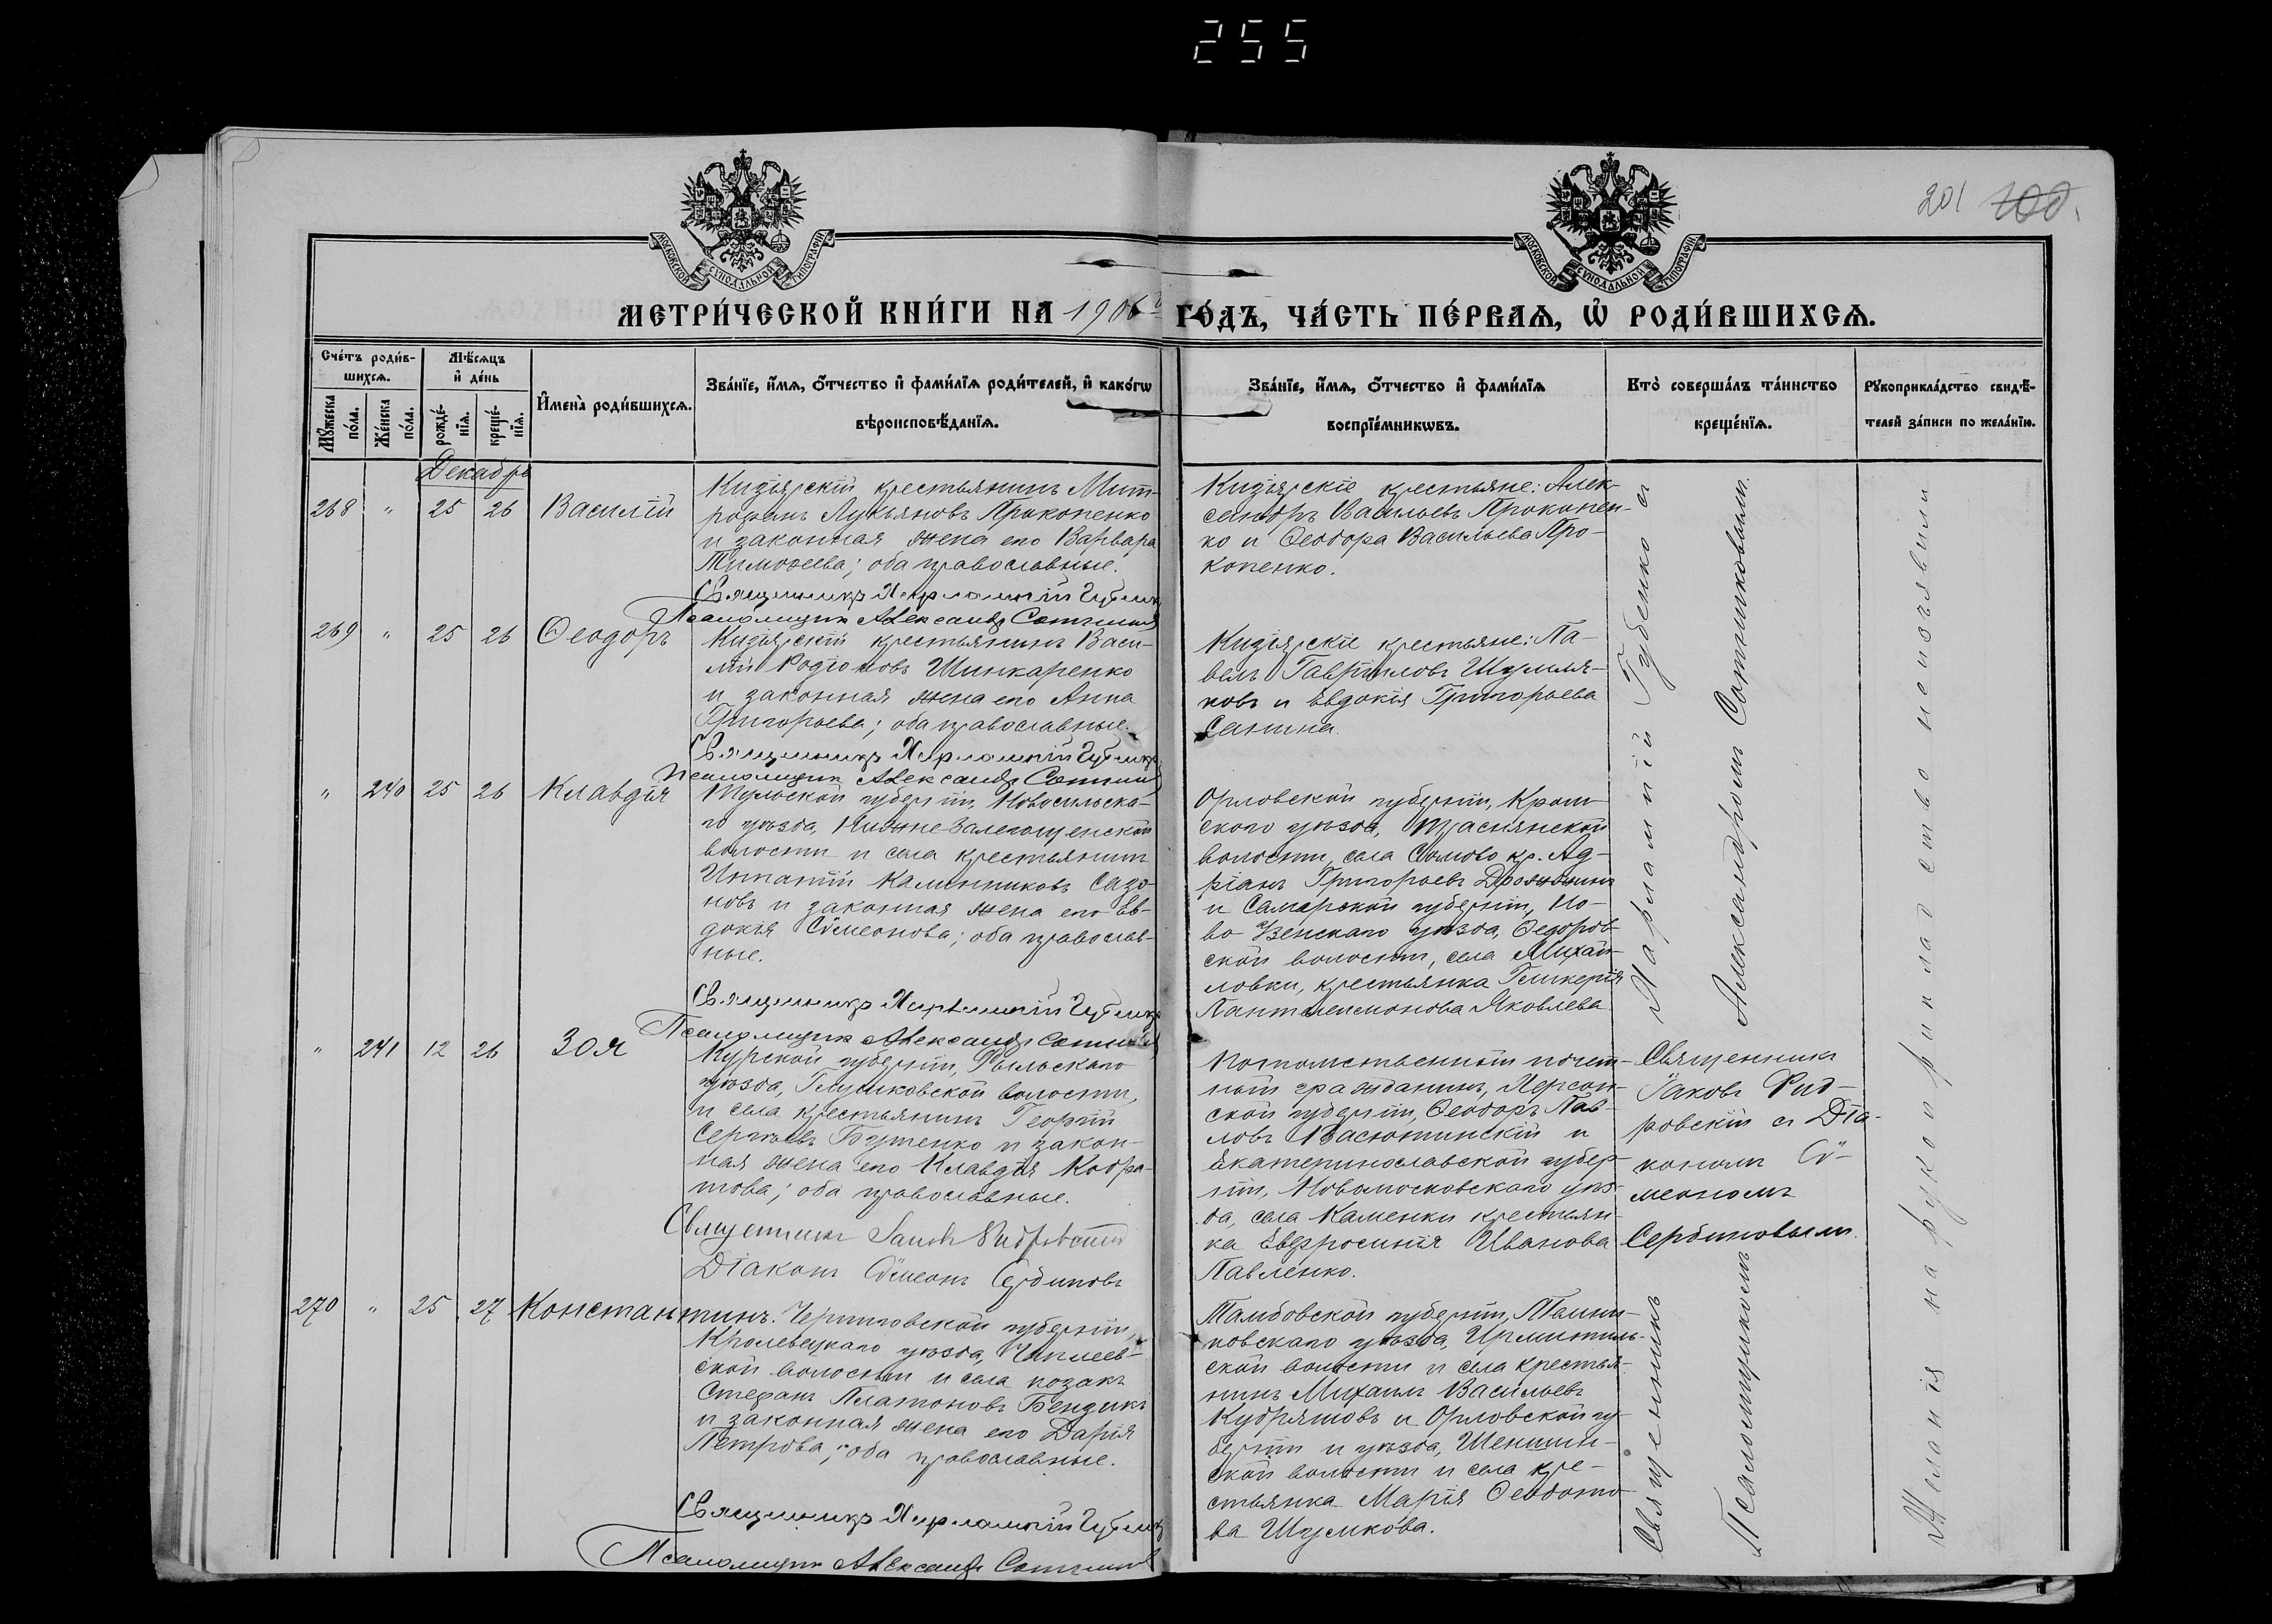 255
201 100.
МОСКОВСКОЙ СУНОДАЛЬНОЙ ТИПОГРАФІИ
МОСКОВСКОЙ СУНОДАЛЬНОЙ ТИПОГРАФІИ
МЕТРИ́ЧЕСКОЙ КНИ́ГИ НА 1906й ГО́ДЪ, ЧА́СТЬ ПЕ́РВАѦ, Ѡ РОДИ́ВШИХСѦ.
Сче́тъ роди́в-
шихсѧ.
Мꙋ́жеска по́ла.
Же́нска по́ла.
Мѣ́сѧцъ
и҆ де́нь
рожде́-
нїѧ.
креще́-
нїѧ.
И҆мена̀ роди́вшихсѧ.
Зва́нїе, и҆́мѧ, ѻ҆́тчество и҆ фами́лїѧ роди́телей, и҆ како́гѡ
вѣроисповѣ́данїѧ.
Зва́нїе, и҆́мѧ, ѻ҆́тчество и҆ фами́лїѧ
воспрїе́мникѡвъ.
Кто̀ соверша́лъ та́инство
креще́нїѧ.
Рꙋкоприкла́дство свидѣ́-
телей за́писи по жела́нїю.
Декабрь
268 " 25 26 Василій
Кизіярскій крестьянинъ Мит-
рофанъ Лукьяновъ Прокопенко
и законная жена его Варвара
Тимоѳеева; оба православные.
Священникъ Харлампій Губенко
Псаломщикъ Александръ Сотников
Кизіярскіе крестьяне: Алек-
сандръ Васильевъ Прокопен-
ко и Ѳеодора Васильева Про-
копенко.
269 " 25 26 Ѳеодоръ
Кизіярскій крестьянинъ Васи-
лій Родіоновъ Шинкаренко
и законная жена его Анна
Григорьева; оба православные.
Священникъ Харлампій Губенко
Псаломщикъ Александръ Сотников
Кизіярскіе крестьяне: Па-
велъ Гавріиловъ Шумля-
ковъ и Евдокія Григорьева
Санина.
" 240 25 26 Клавдія
Тульской губерніи, Новосильска-
го уѣзда, Нижне-Залегощенской
волости и села крестьянинъ
Игнатій Каминниковъ Сазо-
новъ и законная жена его Ев-
докія Сѵмеонова; оба православ-
ные.
Священникъ Харлампій Губенко
Псаломщикъ Александръ Сотников
Орловской губерніи, Кром-
ского уѣзда,
волости, села Сомово кр. Ад-
ріанъ Григорьевъ Дрожжинъ
и Самарской губерніи, Но-
во-Узенскаго уѣзда, Ѳедоров-
ской волости, села Михай-
ловки, крестьянка Гликерія
Пантелеимонова Яковлева
" 241 12 26 Зоя
Курской губерніи, Рыльскаго
уѣзда, Глушковской волости,
и села крестьянинъ Георгій
Сергѣевъ Бутенко и закон-
ная жена его Клавдія Кодра-
това; оба православные.
Священникъ Іаковъ Ридровскій
Діаконъ Сѵмеонъ Сербиновъ
Потомственный почет-
ный гражданинъ, Херсон-
ской губерніи, Ѳеодоръ Пав-
ловъ Васютинскій и
Екатеринославской губер-
ніи, Новомосковскаго уѣз-
да, села Каменки крестьян-
ка Евфросинія Иванова
Павленко.
Священникъ
Іаковъ Рид-
ровскій съ Діа-
кономъ Сѵ-
меономъ
Сербиновымъ.
270 " 25 27 Константинъ.
Черниговской губерніи,
Кролевецкаго уѣзда, Чаплеев-
ской волости и села козакъ
Стефанъ Платоновъ Бендикъ
и законная жена его Дарія
Петрова; оба православные.
Священникъ Харлампій Губенко
Псаломщикъ Александръ Сотников
Тамбовской губерніи, Темни-
ковскаго уѣзда,
ской волости и села крестья-
нинъ Михаилъ Васильевъ
Кудряшовъ и Орловской гу-
берніи и уѣзда, Шеншин-
ской волости и села кре-
стьянка Марія Ѳеодото-
ва Шумкова.
Священникъ Харлампій Губенко съ
Псаломщикомъ Александромъ Сотниковымъ.
Желанія на рукоприкладство неизъявили